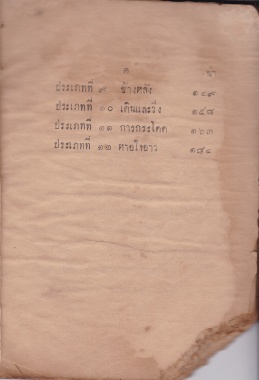 ค น่า
ประเภทที่ ๙ ข้างหลัง ๑๔๙
ประเภทที่ ๑๐ เดินและวิ่ง ๑๕๘
ประเภทที่ ๑๑ การกระโดด ๑๖๓
ประเภทที่ ๑๒ หายใจยาว ๑๘๔